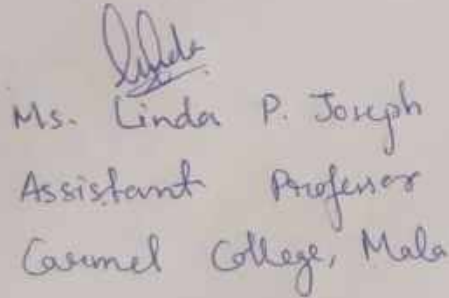 Linda
Ms. Linda P. Joseph
Assistant Professor
Carmel College, Mala